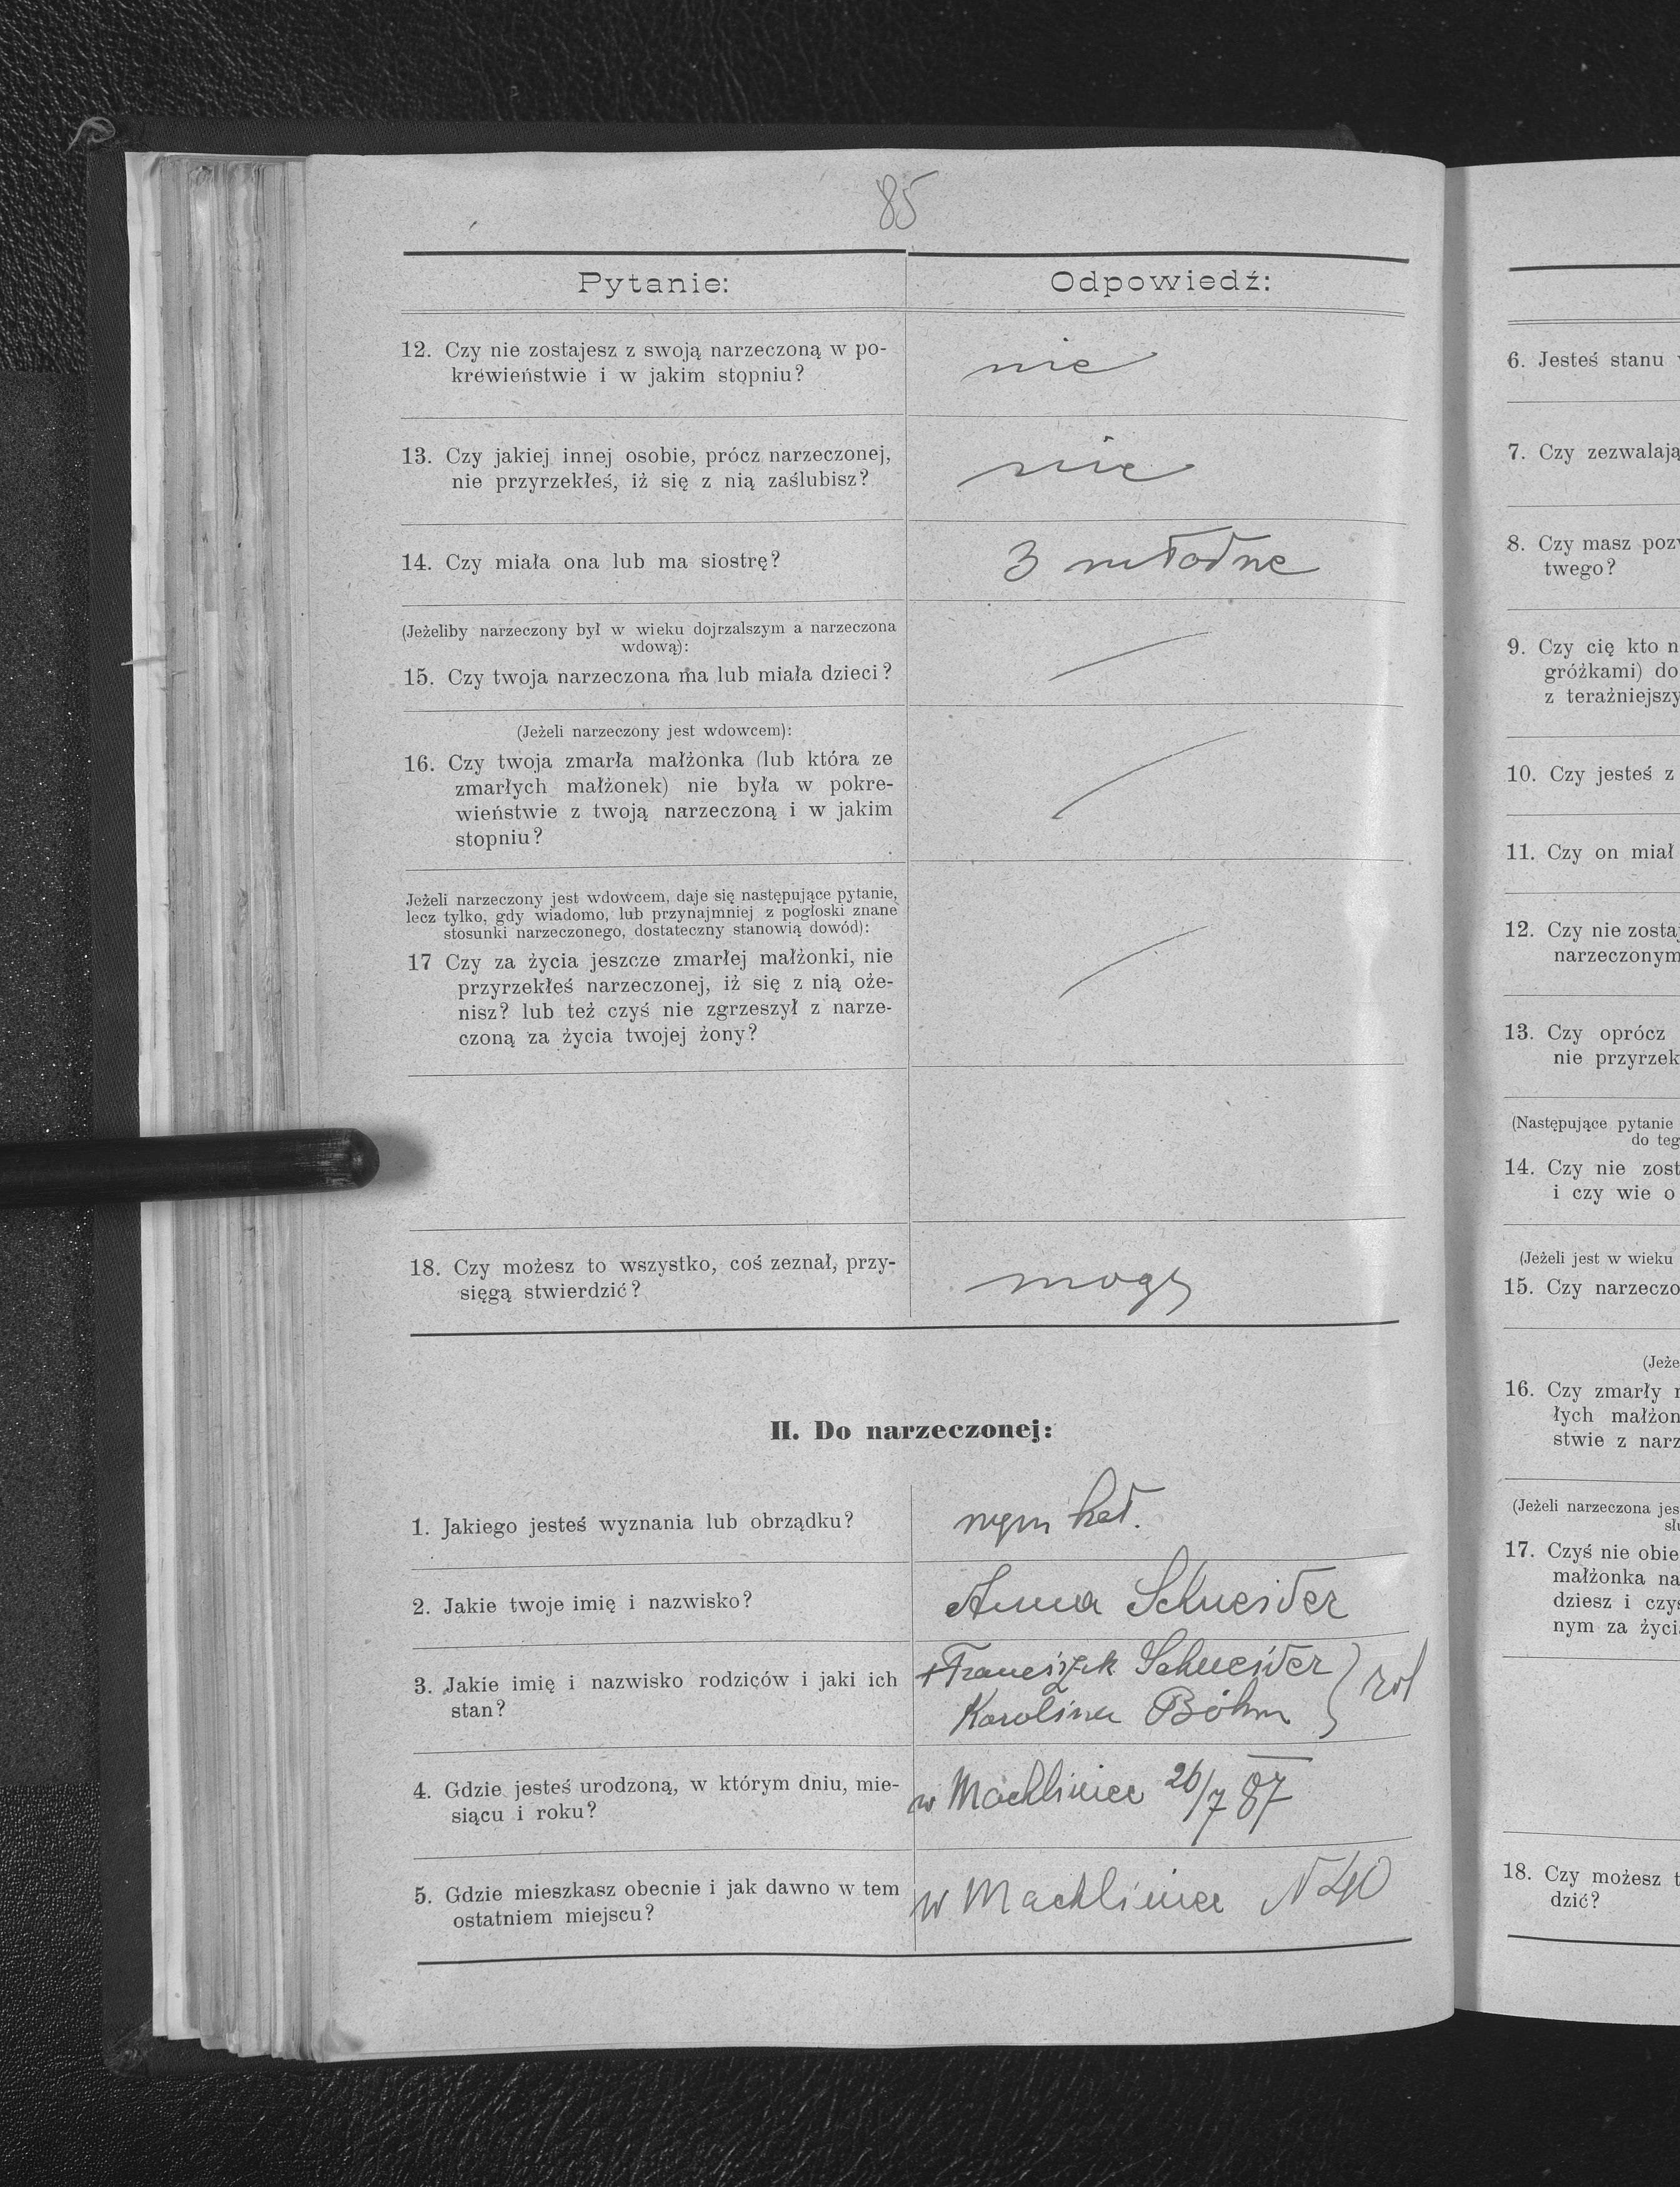 85
Pytanie:
Odpowiedź:
12. Czy nie zostajesz z swoją narzeczoną w po-
krewieństwie i w jakim stopniu?
nie
13. Czy jakiej innej osobie, prócz narzeczonej,
nie przyrzekłeś, iż się z nią zaślubisz?
nie
14. Czy miała ona lub ma siostrę?
3
(Jeżeliby narzeczony był w wieku dojrzalszym a narzeczona
wdową):
15. Czy twoja narzeczona ma lub miała dzieci?
(Jeżeli narzeczony jest wdowcem):
16. Czy twoja zmarła małżonka (lub która ze
zmarłych małżonek) nie była w pokre-
wieństwie z twoją narzeczoną i w jakim
stopniu?
Jeżeli narzeczony jest wdowcem, daje się następujące pytanie,
lecz tylko, gdy wiadomo, lub przynajmniej z pogłoski znane
stosunki narzeczonego, dostateczny stanowią dowód):
17 Czy za życia jeszcze zmarłej małżonki, nie
przyrzekłeś narzeczonej, iż się z nią oże-
nisz? lub też czyś nie zgrzeszył z narze-
czoną za życia twojej żony?
18. Czy możesz to wszystko, coś zeznał, przy-
sięgą stwierdzić?
mogę
II. Do narzeczonej:
1. Jakiego jesteś wyznania lub obrządku?
rzym kat.
2. Jakie twoje imię i nazwisko?
Anna Schneider
3. Jakie imię i nazwisko rodziców i jaki ich
stan?
+Franciszek Schneider
Karolina Böhm } rol
4. Gdzie jesteś urodzoną, w którym dniu, mie-
siącu i roku?
w Machliniec 26/7 87
5. Gdzie mieszkasz obecnie i jak dawno w tem
ostatniem miejscu?
w Machliniec N 40
6. Jesteś stanu
7. Czy zezwalają
8. Czy masz
twego?
9. Czy cię kto
gróżkami) do
z
10. Czy jesteś z
11. Czy on miał
12. Czy nie
narzeczonym
13. Czy oprócz
nie
(Następujące pytanie
do
14. Czy nie
i czy wie o
(Jeżeli jest w wieku
15. Czy
16. Czy zmarły
łych
stwie z
(Jeżeli narzeczona
17. Czyś nie
małżonka
dziesz i
nym za
18. Czy możesz
dzić?